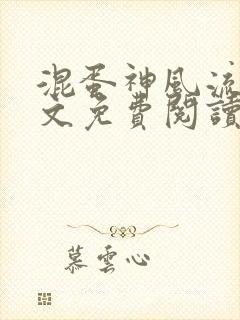 混蛋神風流
文免費閱讀
慕雲心